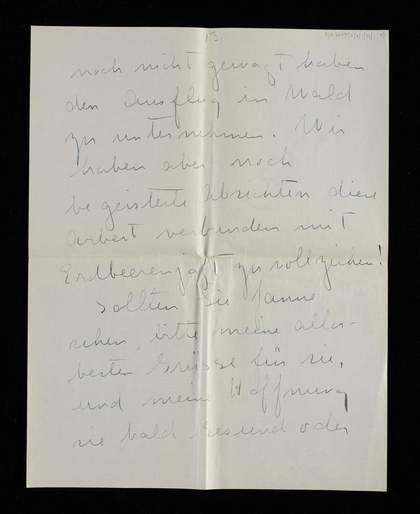 13.
noch nicht gewagt haben
den Ausflug in Wald
zu unternehmen. Wir
haben aber noch
begeisterte Absichten diese
Arbeit verbunden mit
Erdbeerenjagt zu vollziehen!
Sollten Sie Fanne
sehen, bitte meine aller-
besten Grüsse für sie,
und meine Hoffnung
sie bald gesund oder